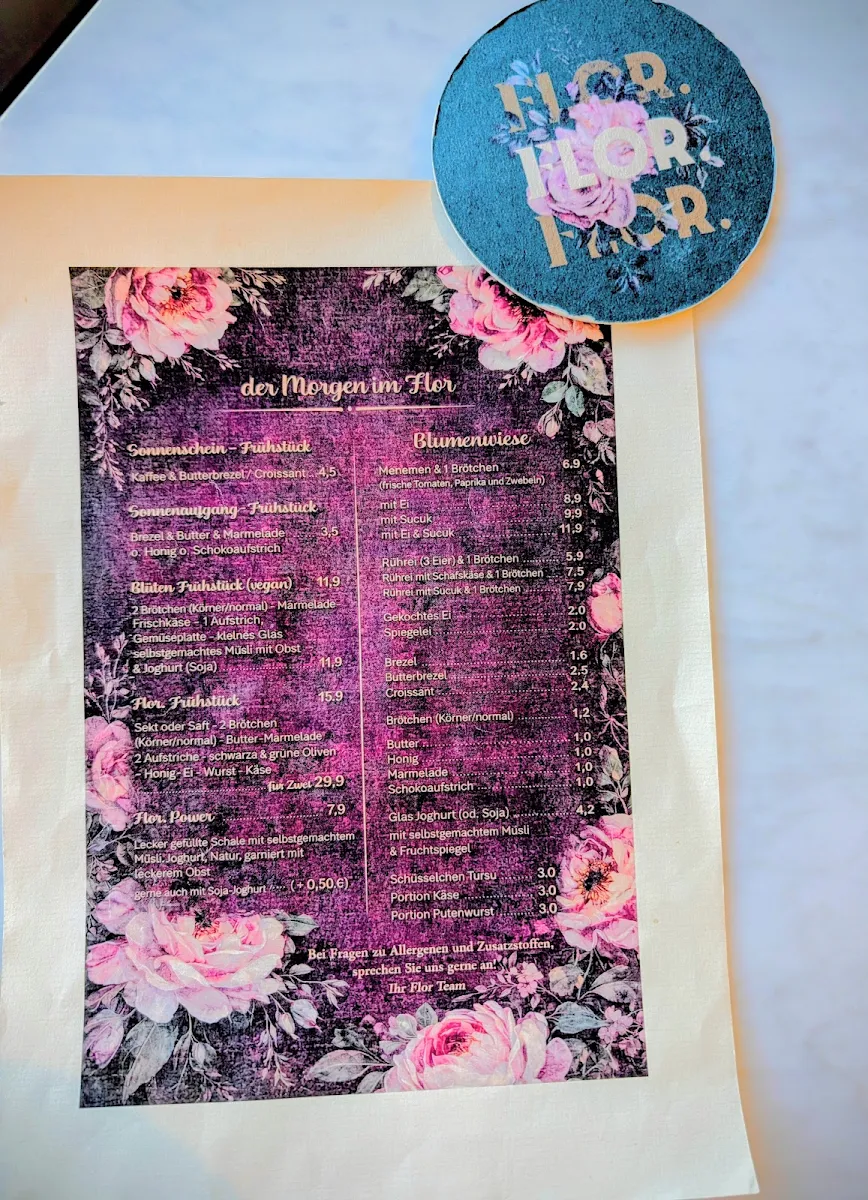 FLOR.
FLOR.
FLOR.
der Morgen im Flor
Sonnenschein - Frühstück
Kaffee & Butterbrezel / Croissant .. 4,5
Sonnenaufgang - Frühstück
Brezel & Butter & Marmelade ........ 3,5
o. Honig o. Schokoaufstrich
Blüten Frühstück (vegan) 11,9
2 Brötchen (Körner/normal) - Marmelade
Frischkäse - 1 Aufstrich,
Gemüseplatte - kleines Glas
selbstgemachtes Müsli mit Obst
& Joghurt (Soja) ........ 11,9
Flor. Frühstück 15.9
Sekt oder Saft - 2 Brötchen
(Körner/normal) - Butter - Marmelade
2 Aufstriche - schwarza & grüne Oliven
- Honig - Ei - Wurst - Käse
........ für Zwei 29,9
Flor. Power ........ 7,9
Lecker gefüllte Schale mit selbstgemachtem
Müsli, Joghurt, Natur, garniert mit
leckerem Obst
gerne auch mit Soja-Joghurt .... (+ 0,50 €)
Blumenwiese
Menemen & 1 Brötchen 6.9
(frische Tomaten, Paprika und Zwebeln)
mit Ei 8,9
mit Sucuk 9,9
mit Ei & Sucuk 11,9
Rührei (3 Eier) & 1 Brötchen ........ 5.9
Rührei mit Schafskäse & 1 Brötchen .... 7,5
Rührei mit Sucuk & 1 Brötchen ........ 7,9
Gekochtes Ei ........ 2.0
Spiegelei ........ 2:0
Brezel ........ 1.6
Butterbrezel ........ 2.5
Croissant ........ 2,4
Brötchen (Körner/normal) ........ 1,2
Butter ........ 1,0
Honig ........ 1,0
Marmelade ........ 1,0
Schokoaufstrich ........ 1,0
Glas Joghurt (od. Soja) ........ 4,2
mit selbstgemachtem Müsli
& Fruchtspiegel
Schüsselchen Tursu ........ 3.0
Portion Käse ........ 3,0
Portion Putenwurst ........ 3,0
Bei Fragen zu Allergenen und Zusatzstoffen,
sprechen Sie uns gerne an!
Ihr Flor Team